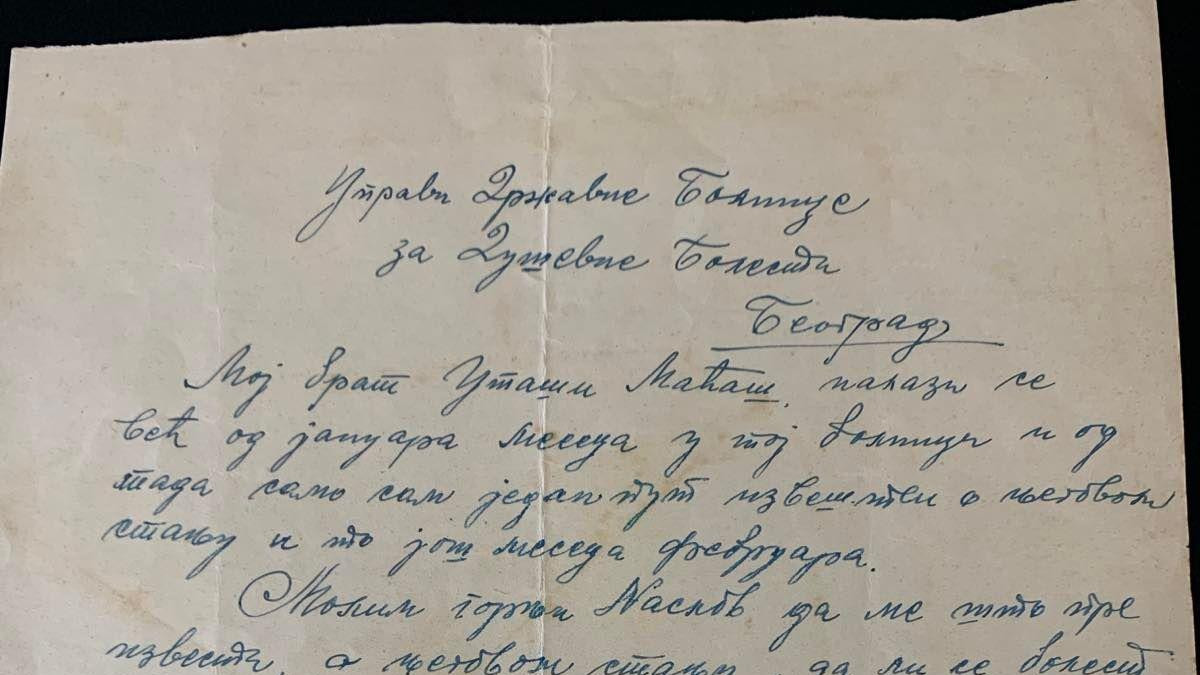 Управи Државне Болнице
за Душевне Болести
Београд
Мој брат Уташи Маћаш, налази се
већ од јануара месеца у тој болници и од
тада само сам један пут извештен о његовом
стању и то још месеца фебруара.
Молим горњи Наслов да ме што пре
извести, о његовом стању, да ли се болест